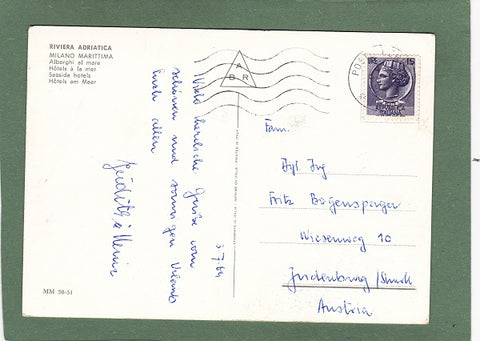 RIVIERA ADRIATICA
MILANO MARITTIMA
Alberghi al mare
Hôtels à la mer
Seaside hotels
Hôtels am Meer
MM 50-51
3.7.69
Viele herzliche Grüße vom
schönen und sonnigen
Euch allen
Judith &
A
B R
POS
15
Fam.
Dipl Ing
Fritz Bogensperger
Wiesenweg 10
Judenburg / Stmk
Austria